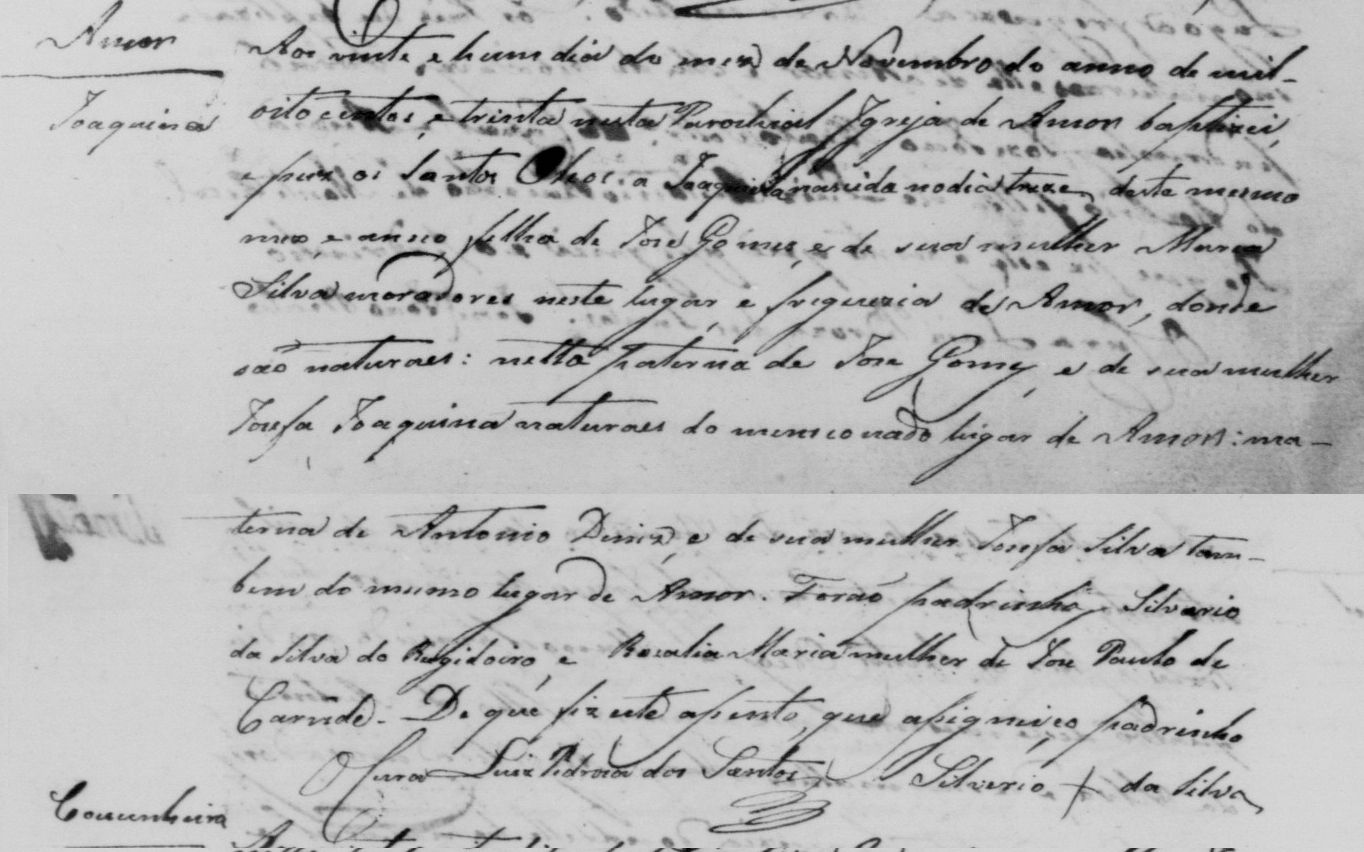 Amor
Joaquina
Aos vinte e hum dia do mez de Novembro do anno de mil-
oito centos, e trinta nesta Parochial Igreja de Amor baptizei,
e puz os Santos Oleos a Joaquina nascida no dia treze deste mesmo
mez e anno, filha de Joze Gomes, e de sua mulher Maria
Silva moradores neste lugar, e freguezia de Amor, donde
são naturaes: netta paterna de Joze Gomes, e de sua mulher
Josefa Joaquina naturaes do mencionado lugar de Amor: ma-
terna de Antonio Diniz, e de sua mulher Josefa Silva tam-
bem do mesmo lugar de Amor. Forão padrinhos Silverio
da Silva do Regidoiro, e Rozalia Maria mulher de Joze Paulo de
Carvide. De que fiz este assento, que assignei, e o padrinho
O Cura Luiz Pedroza dos Santos Silverio + da Silva
Coucinheira